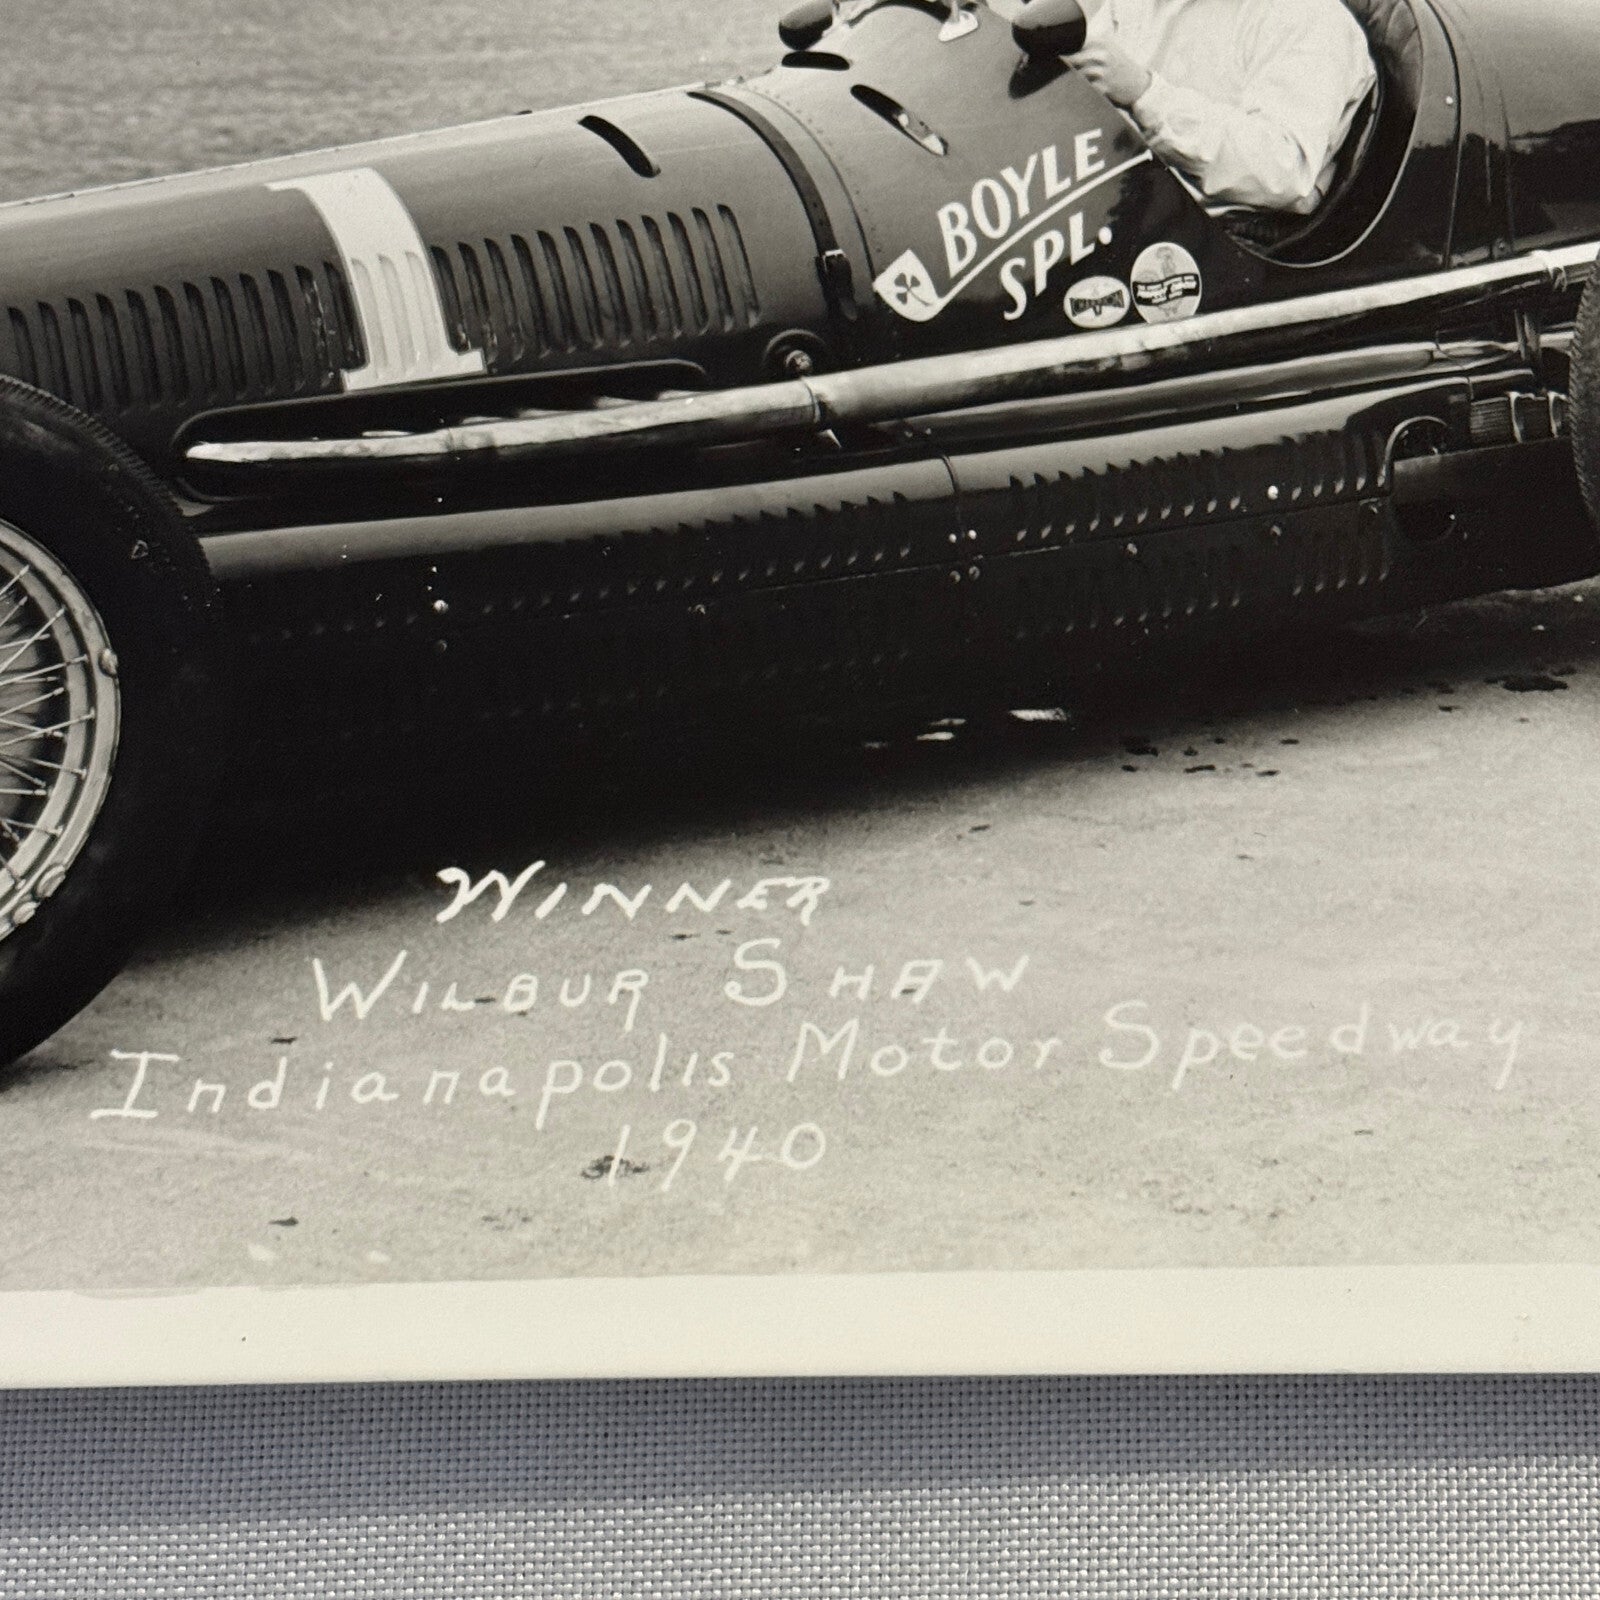 1
BOYLE
SPL.
CHAMPION
WINNER
WILBUR SHAW
Indianapolis Motor Speedway
1940